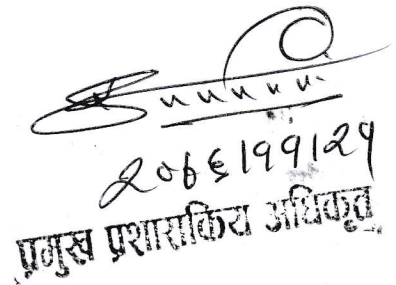 २०७६।११।२५
प्रमुख प्रशासकिय अधिकृत